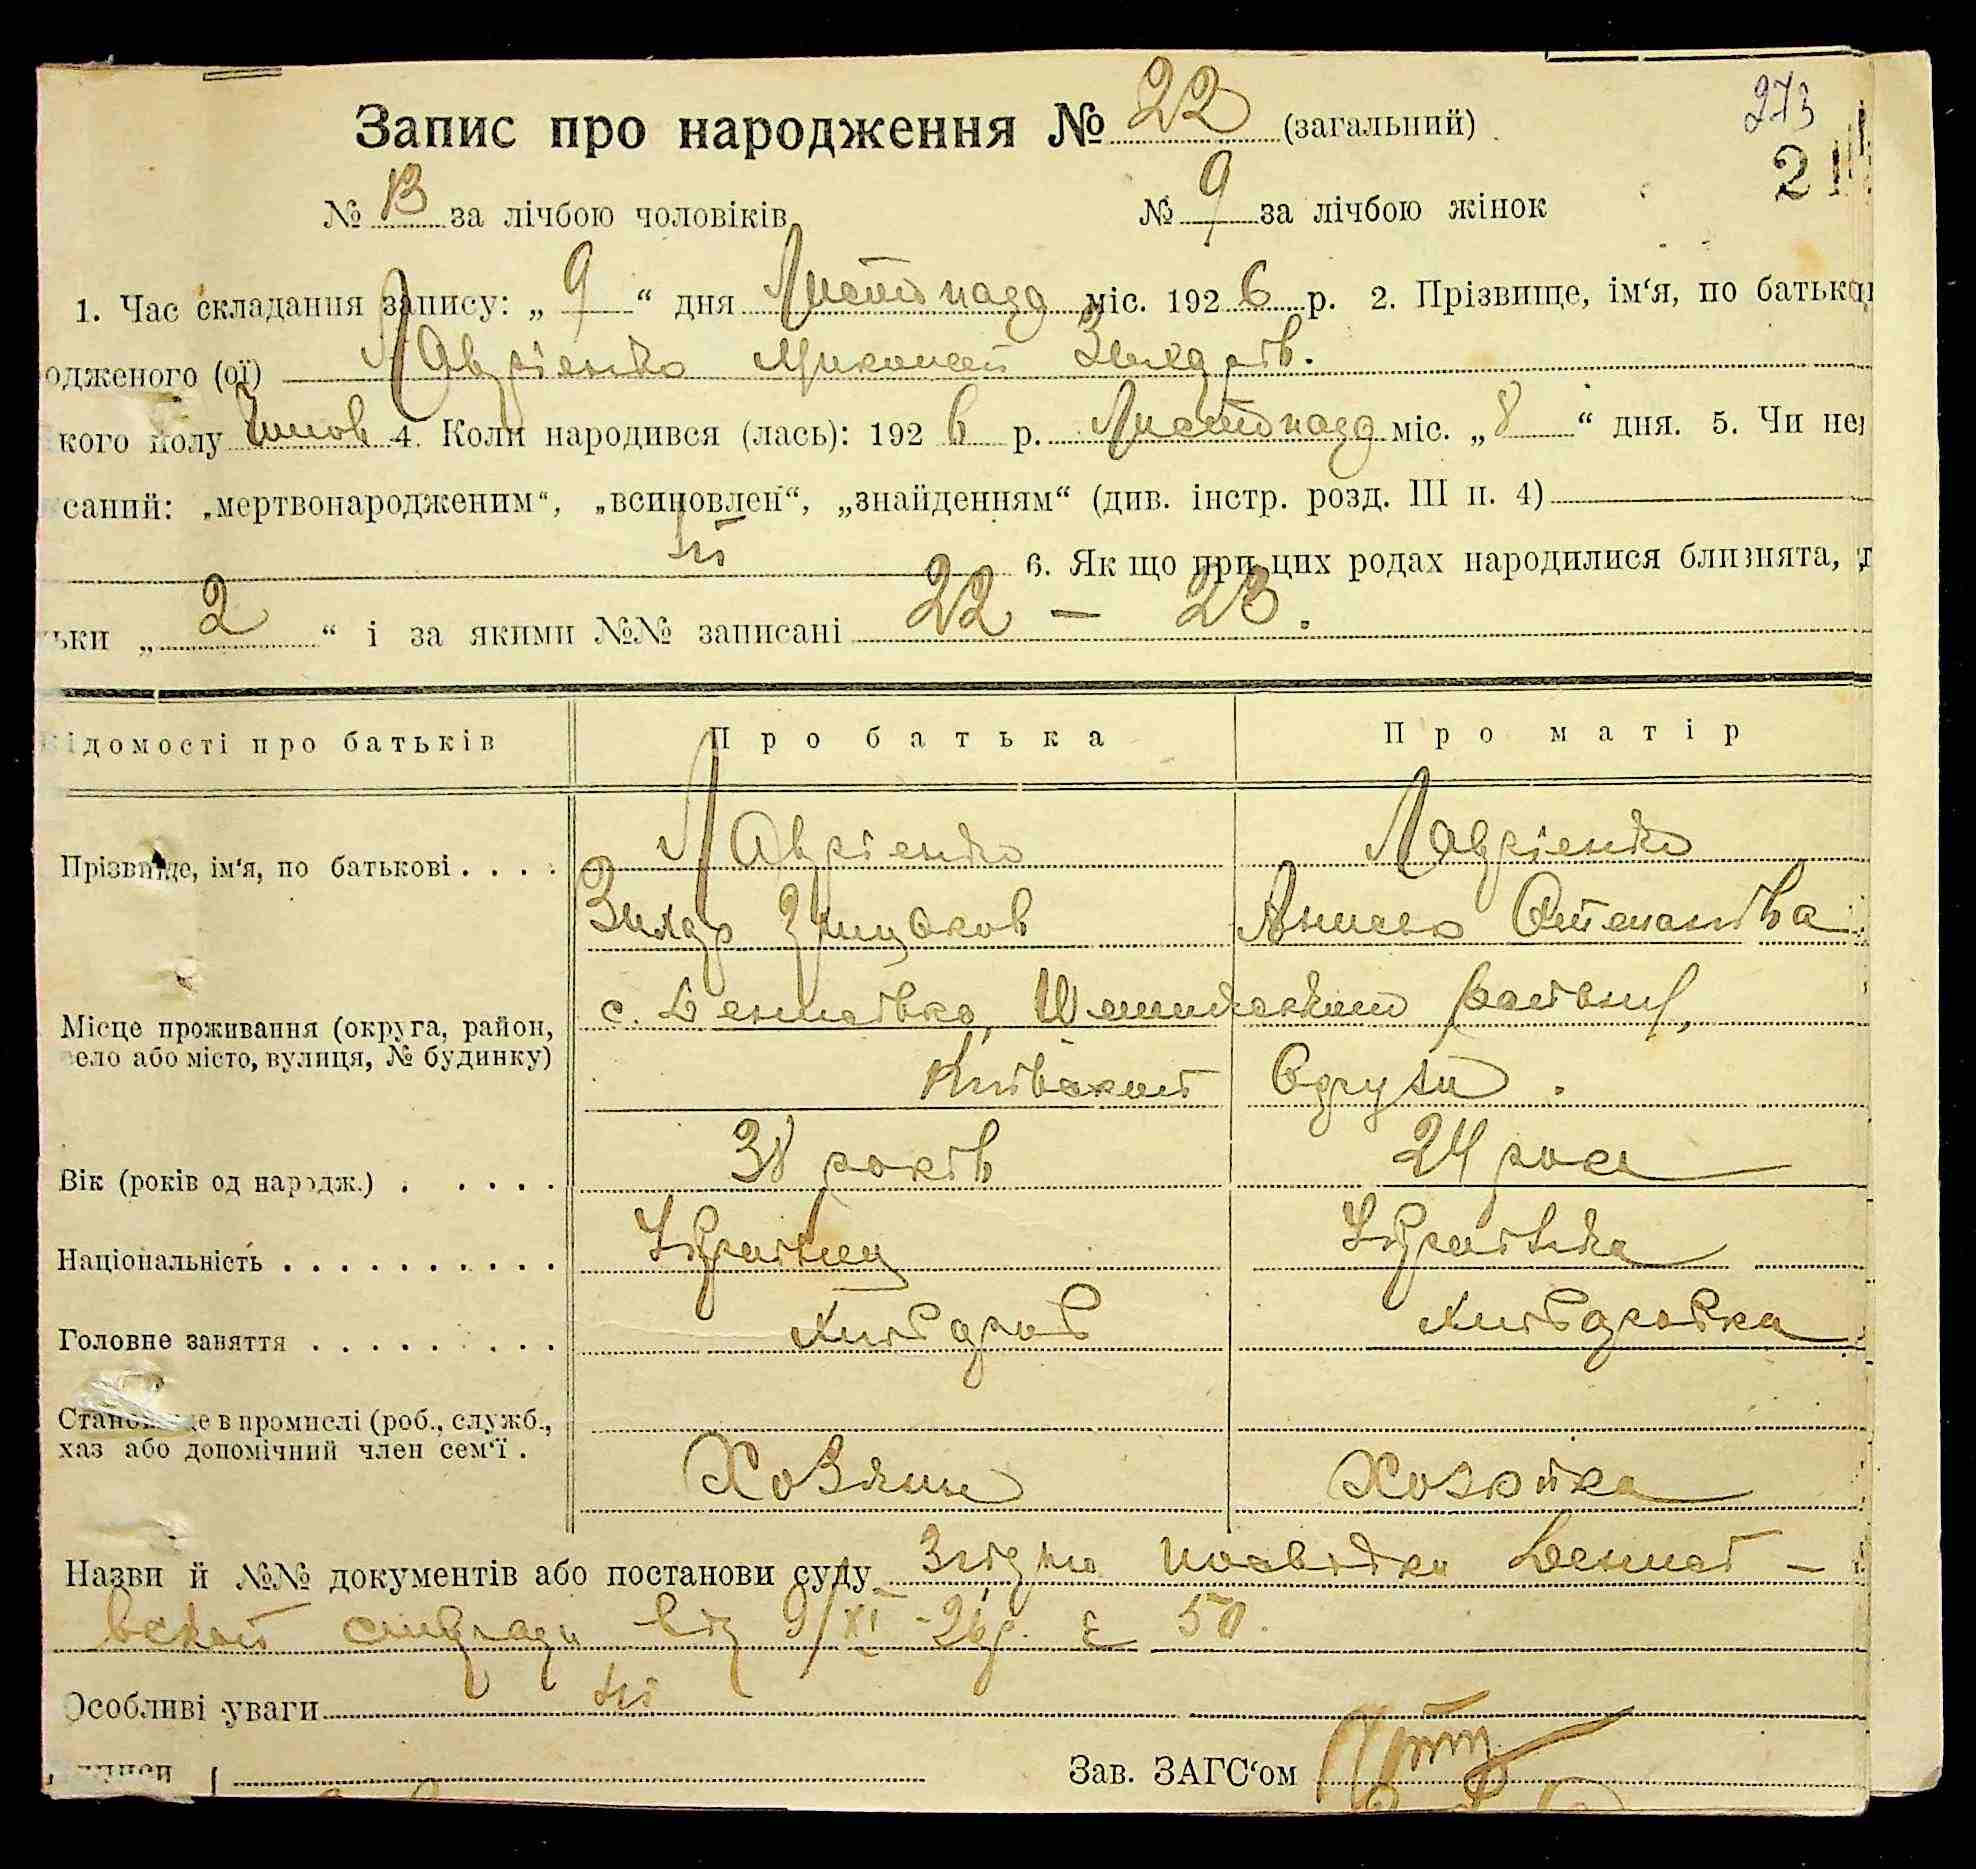 273
Запис про народження № 22 (загальний)
21
№ 13 за лічбою чоловіків № 9 за лічбою жінок
1. Час складання запису: „ 9 “ дня Листопада міс. 1926 р. 2. Прізвище, ім‘я, по батьков
одженого (ої) Лавріенко Миколай Захарів.
кого полу чолов 4. Коли народився (лась): 1926 р. Листопада міс. „ 8 “ дня. 5. Чи не
саний: „мертвонародженим“, „всиновлен“, „знайденням“ (див. інстр. розд. III п. 4)
ні 6. Як що при цих родах народилися близнята,
ьки „ 2 “ і за якими №№ записані 22 — 23.
ідомості про батьків Про батька Про матір
Прізвище, ім‘я, по батькові . . . . Лавріенко Лавріенко
Захар Грицьков
Місце проживання (округа, район, с.
ело або місто, вулиця, № будинку) Київської Округи.
Вік (років од народж.) . . . . . 38 років 24 роки
Національність . . . . . . . . . . Українец Українка
Головне заняття . . . . . . . . . Хлібороб Хліборобка
Становище в промислі (роб., служб.,
хаз або допомічний член сем‘ї . Хозяин Хозяйка
Назви й №№ документів або постанови суду Згідно посвідки
сільради від 9/XI-26р. № 50.
Особливі уваги ні
Зав. ЗАГС‘ом